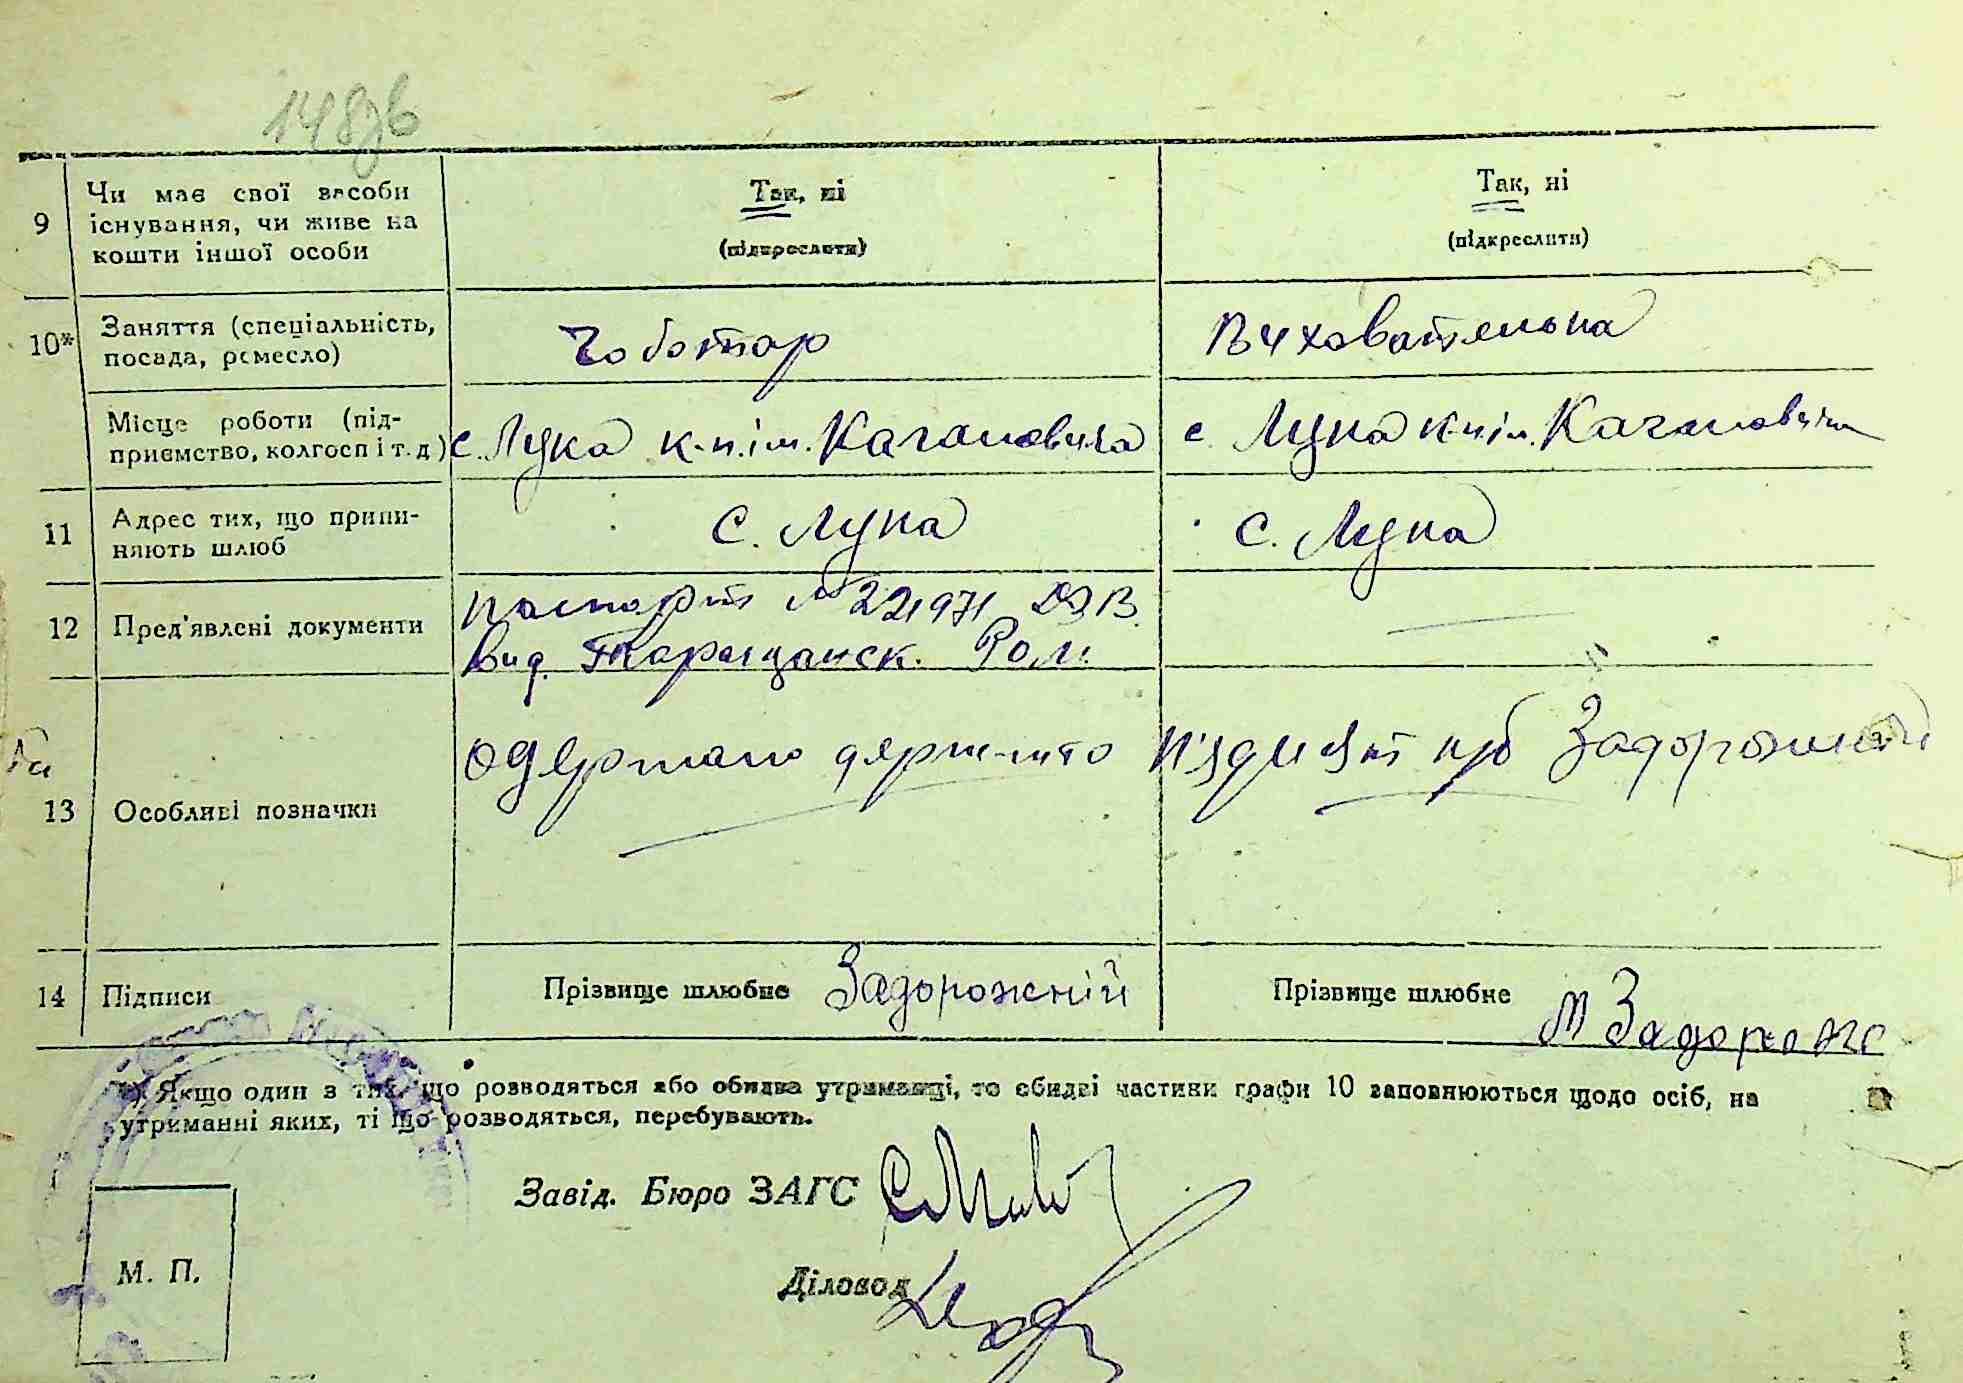 148зв
9 Чи має свої засоби Так, ні Так, ні
існування, чи живе на
кошти іншої особи (підкреслити) (підкреслити)
10* Заняття (спеціальність, Чоботар Вихователька
посада, ремесло)
Місце роботи (під-
приємство, колгосп і т. д) с. Лука к-п. ім. Кагановича с. Лука к-п ім. Кагановича
11 Адрес тих, що припи- с. Лука с. Лука
няють шлюб
12 Пред'явлені документи паспорт №
вид. Таращанск. Ром.
13 Особливі позначки Одержано держ-мито п'ядисят крб Задорожній
14 Підписи Прізвище шлюбне Задорожній Прізвище шлюбне М Задорожс
*) Якщо один з тих, що розводяться або обидва утриманці, то обидві частини графи 10 заповнюються щодо осіб, на
утриманні яких, ті що розводяться, перебувають.
Завід. Бюро ЗАГС
Діловод
М. П.